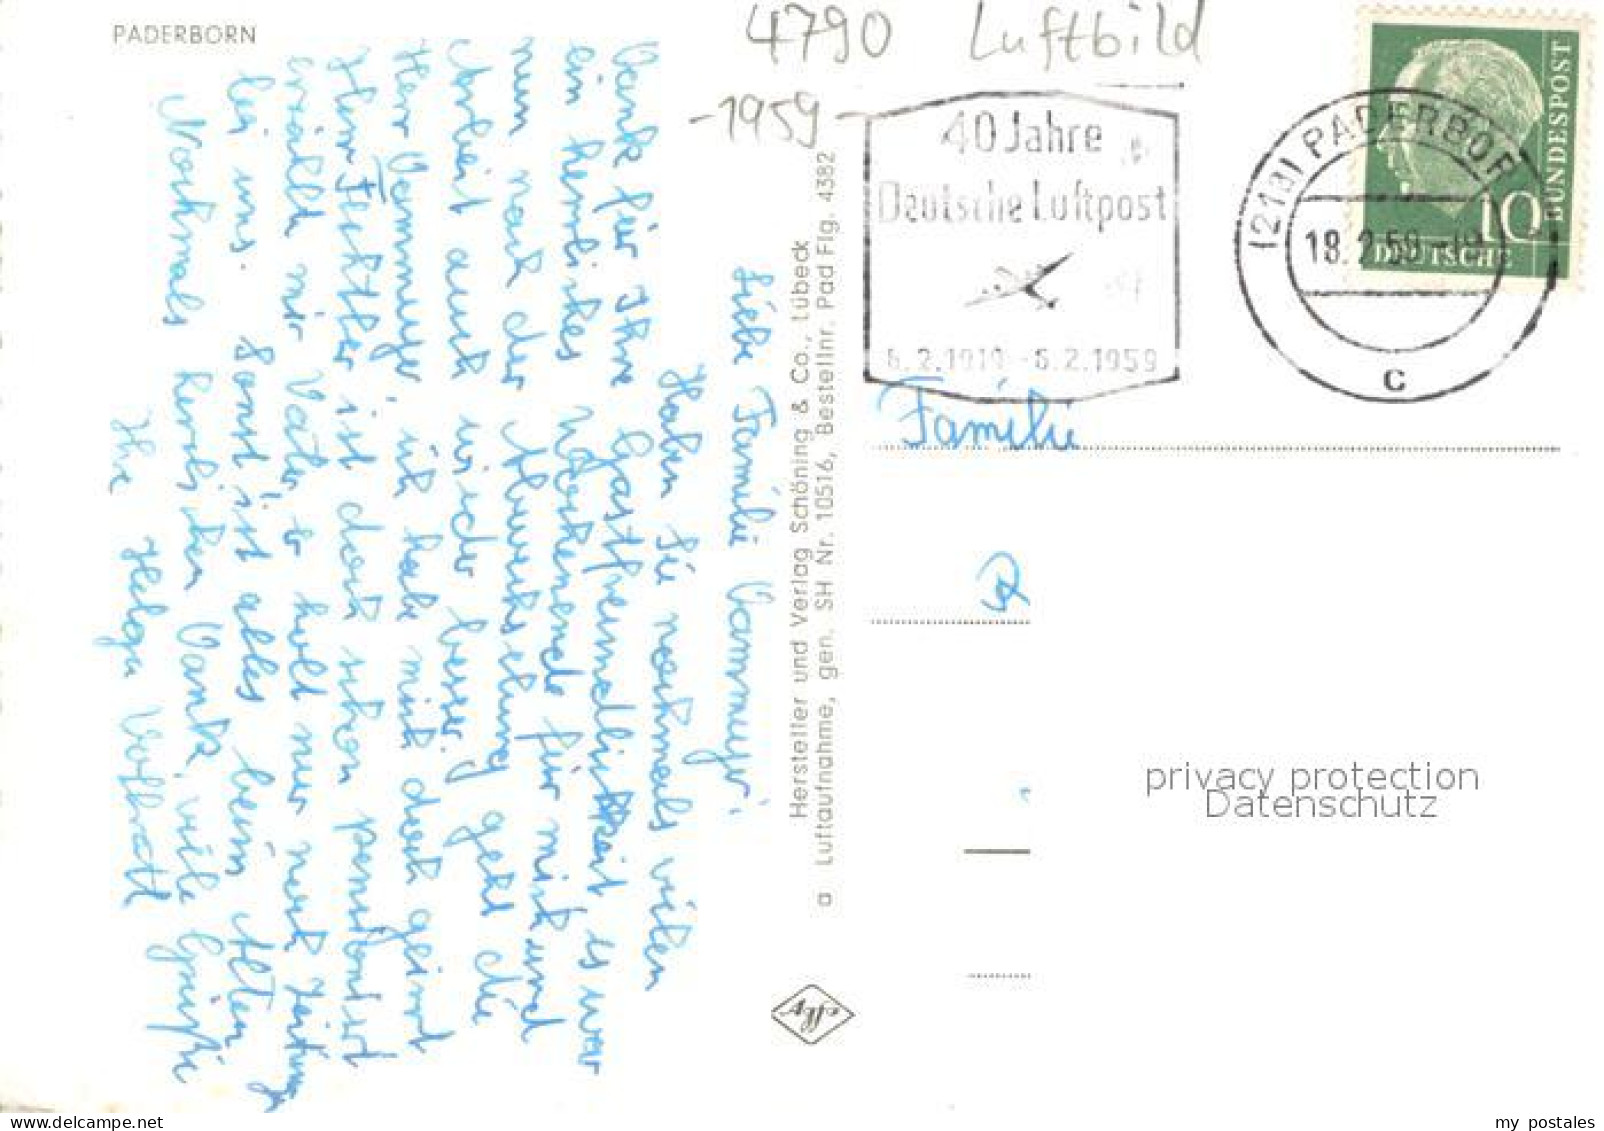 PADERBORN
4790 Luftbild
-1959-
40 Jahre
Deutsche Luftpost
6.2.1919 - 6.2.1959
(21a) PADERBORN
18.2.59
c
10
DEUTSCHE
BUNDESPOST
Liebe Familie
Haben Sie nochmals vielen
Dank für Ihre Gastfreundlichkeit es war
ein herrliches Wochenende für mich und
nun nach der Abwechslung geht die
Arbeit auch wieder besser.
Herr ich habe mich doch geirrt
Herr ist doch schon pensioniert
erzählte mir Vater, er holt nur noch Zeitung
bei uns. Sonst ist alles beim Alten
Nochmals herzlichen Dank, viele Grüße
Ihre Helga
Hersteller und Verlag Schöning & Co., Lübeck
a Luftaufnahme, gen. SH Nr. 10516, Bestellnr. Pad Flg. 4382
Familie
privacy protection
Datenschutz
delcampe.net
my_postales